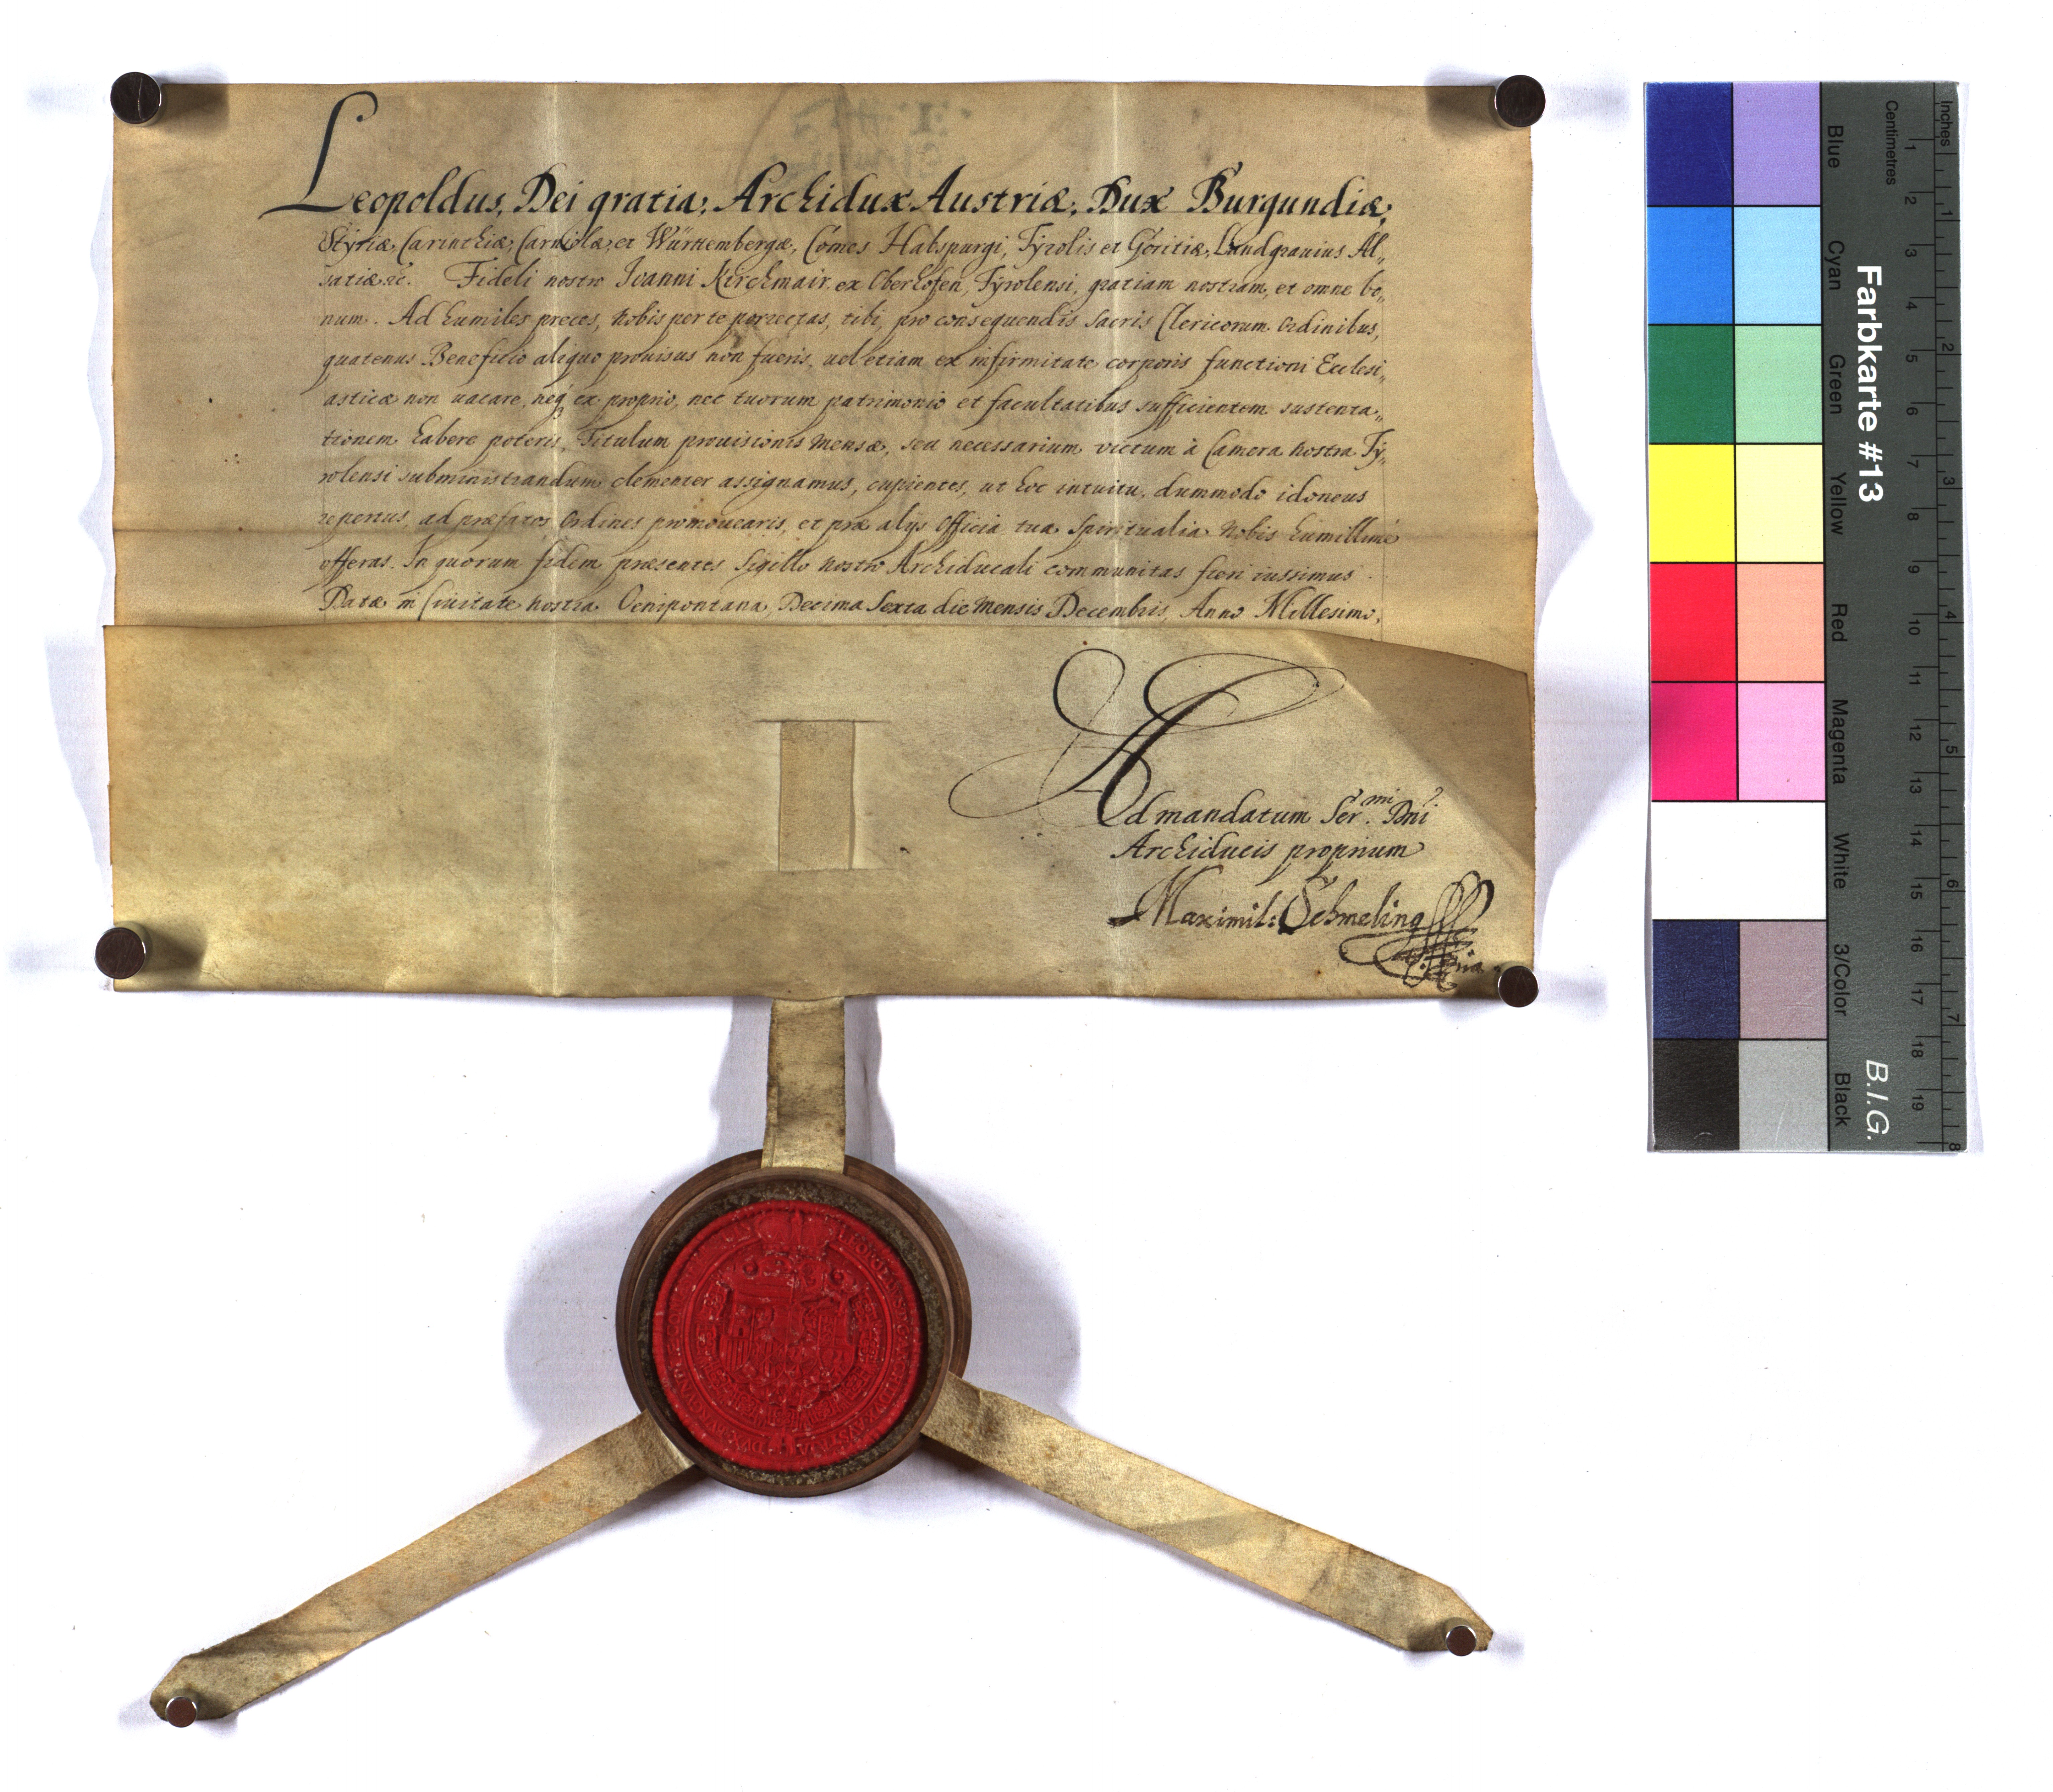 Leopoldus, Dei gratia, Archidux Austriæ, Dux Burgundiæ,
Styriæ, Carinthiæ, Carniolæ, et Würtembergæ, Comes Habspurgi, Tyrolis et Goritiæ, Landgrauius Al„
satiæ &c. Fideli nostro Ioanni Kirchmair ex Oberhofen, Tyrolensi, gratiam nostram, et omne bo„
num. Ad humiles preces, nobis per te porrectas, tibi, pro consequendis sacris Clericorum Ordinibus,
quatenus Beneficio aliquo prouisus non fueris, uel etiam ex infirmitate corporis functioni Ecclesi„
asticæ non uacare, neq3 ex proprio, nec tuorum patrimonio et facultatibus sufficientem sustenta„
tionem habere poteris, Titulum prouisionis mensæ, seu necessarium victum à Camera nostra Ty„
rolensi subministrandum clementer assignamus, cupientes, ut hoc intuitu, dummodo idoneus
repertus, ad præfatos Ordines promouearis, et præ alijs Officia tua Spiritualia Nobis humillimè
offeras. In quorum fidem præsentes Sigillo nostro Archiducali communitas fieri iussimus.
Datæ in Ciuitate nostra Oenipontana, Decima Sexta die mensis Decembris, Anno Millesimo,
Ad mandatum Ser.mi Dni
Archiducis proprium
Maximil: Schmeling
LEOPOLDVS D G ARCHIDVX AVSTRIA DVX BVRGVN
Farbkarte #13
B.I.G.
Centimetres
Inches
Blue
Cyan
Green
Yellow
Red
Magenta
White
3/Color
Black
1 2 3 4 5 6 7 8 9 10 11 12 13 14 15 16 17 18 19
1 2 3 4 5 6 7 8